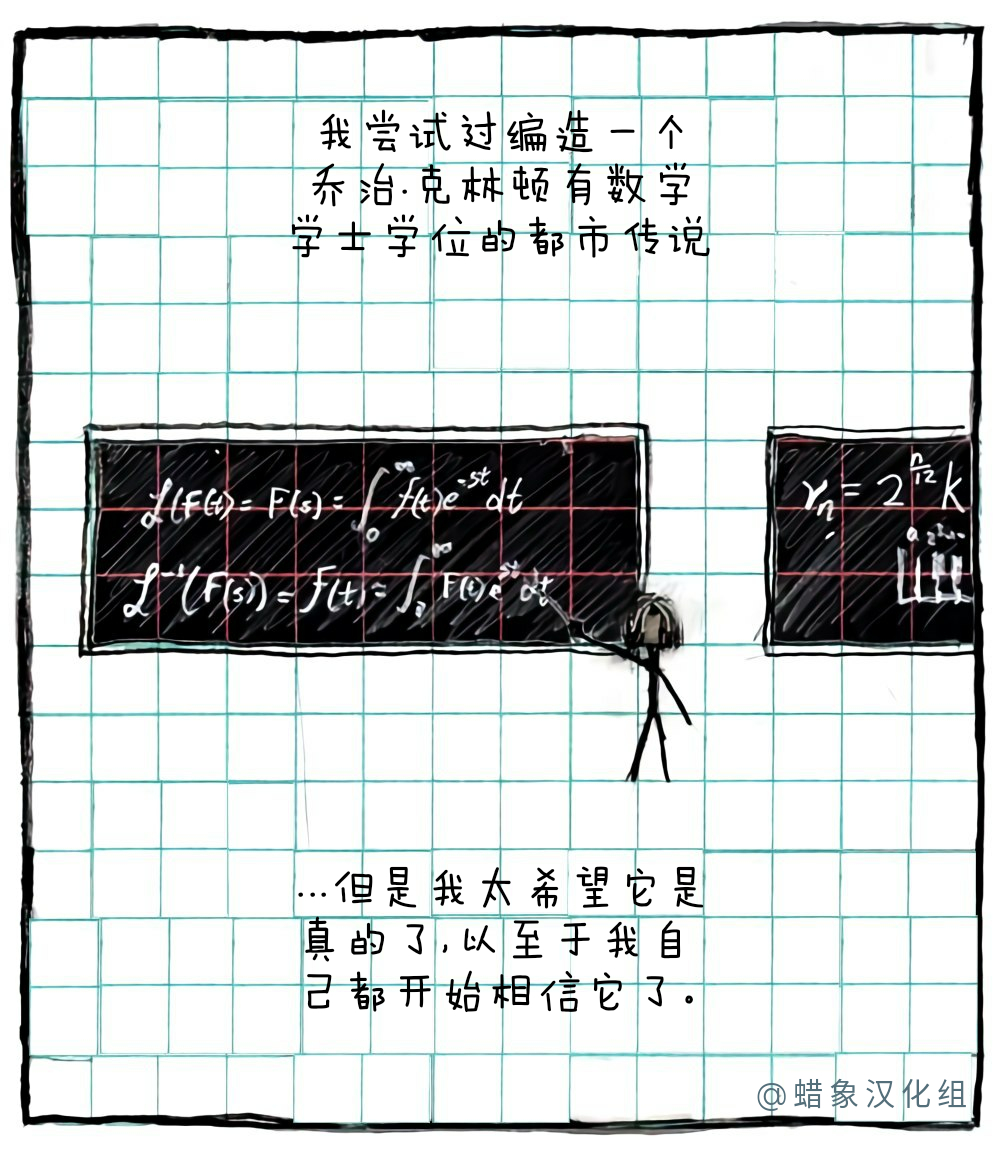 我尝试过编造一个
乔治.克林顿有数学
学士学位的都市传说
ℒ(F(t)= F(s) = ∫₀^∞ f(t)e^-st dt
ℒ⁻¹(F(s)) = f(t)= ∫^∞ F(t)e^st dt
rₙ = 2^n/12 k
...但是我太希望它是
真的了,以至于我自
己都开始相信它了。
@蜡象汉化组